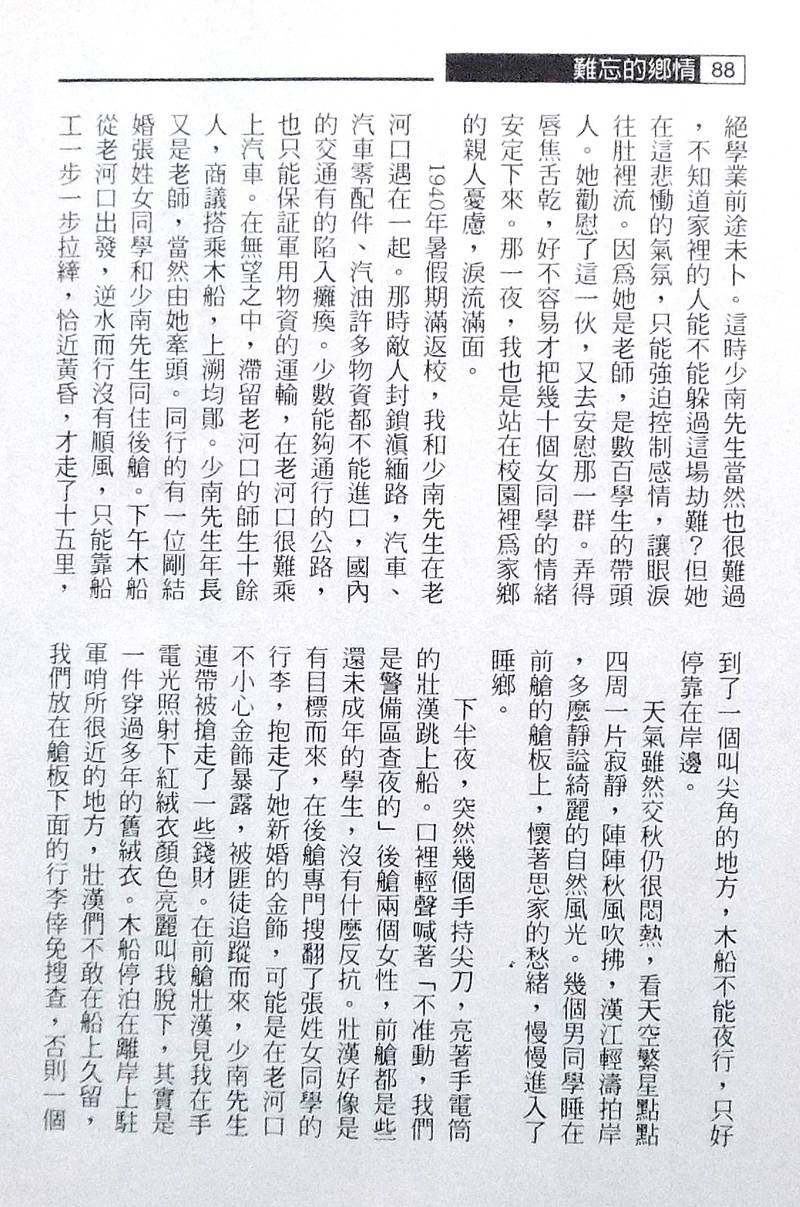 難忘的鄉情 88
絕學業前途未卜。這時少南先生當然也很難過
，不知道家裡的人能不能躲過這場劫難？但她
在這悲慟的氣氛，只能強迫控制感情，讓眼淚
往肚裡流。因爲她是老師，是數百學生的帶頭
人。她勸慰了這一伙，又去安慰那一群。弄得
唇焦舌乾，好不容易才把幾十個女同學的情緒
安定下來。那一夜，我也是站在校園裡爲家鄉
的親人憂慮，淚流滿面。
1940年暑假期滿返校，我和少南先生在老
河口遇在一起。那時敵人封鎖滇緬路，汽車、
汽車零配件、汽油許多物資都不能進口，國內
的交通有的陷入癱瘓。少數能夠通行的公路，
也只能保証軍用物資的運輸，在老河口很難乘
上汽車。在無望之中，滯留老河口的師生十餘
人，商議搭乘木船，上溯均鄖。少南先生年長
又是老師，當然由她牽頭。同行的有一位剛結
婚張姓女同學和少南先生同住後艙。下午木船
從老河口出發，逆水而行沒有順風，只能靠船
工一步一步拉縴，恰近黃昏，才走了十五里，
到了一個叫尖角的地方，木船不能夜行，只好
停靠在岸邊。
天氣雖然交秋仍很悶熱，看天空繁星點點
四周一片寂靜，陣陣秋風吹拂，漢江輕濤拍岸
，多麼靜謐綺麗的自然風光。幾個男同學睡在
前艙的艙板上，懷著思家的愁緒，慢慢進入了
睡鄉。
下半夜，突然幾個手持尖刀，亮著手電筒
的壯漢跳上船。口裡輕聲喊著「不准動，我們
是警備區查夜的」後艙兩個女性，前艙都是些
還未成年的學生，沒有什麼反抗。壯漢好像是
有目標而來，在後艙專門搜翻了張姓女同學的
行李，抱走了她新婚的金飾，可能是在老河口
不小心金飾暴露，被匪徒追蹤而來，少南先生
連帶被搶走了一些錢財。在前艙壯漢見我在手
電光照射下紅絨衣顏色亮麗叫我脫下，其實是
一件穿過多年的舊絨衣。木船停泊在離岸上駐
軍哨所很近的地方，壯漢們不敢在船上久留，
我們放在艙板下面的行李倖免搜查，否則一個